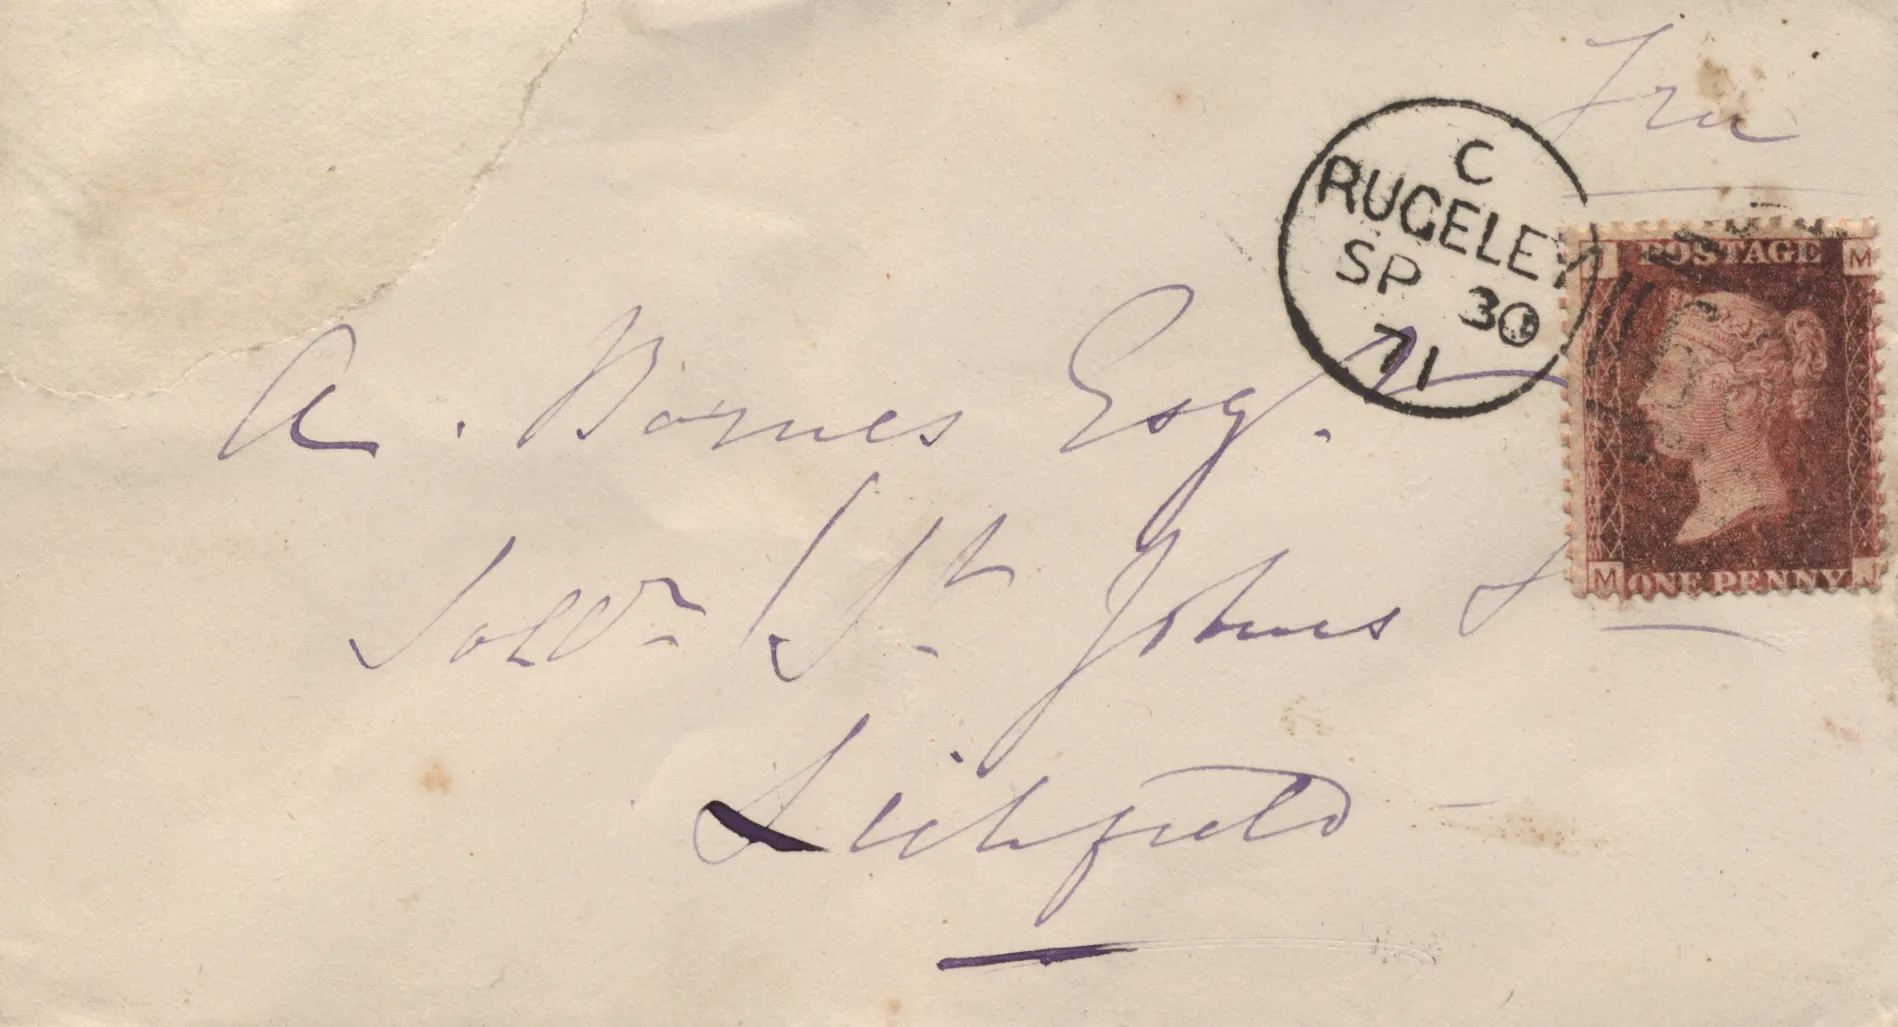 C
RUGELEY
SP 30
71
J POSTAGE M
M ONE PENNY J
A. Barnes Esqr.
Sollr St Johns St
Lichfield